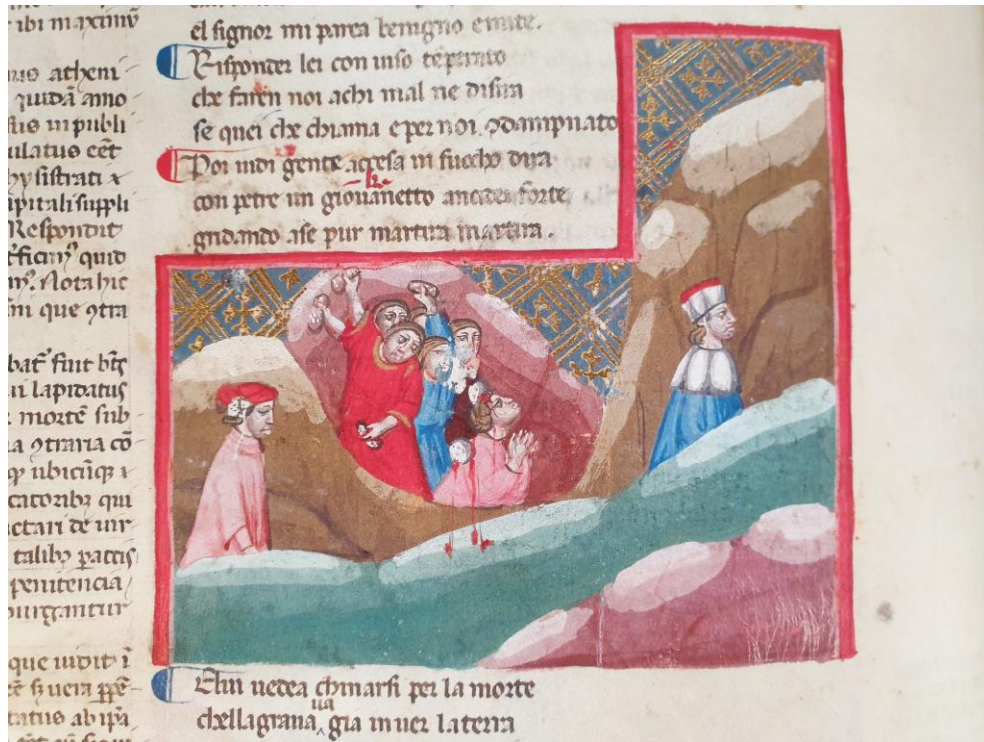 ibi maximū
atheni
quidā amo
in publi
ulatus eēt
apitali suppli
Respondit
quid
Nota hic
ni que 9tra
fuit
ui lapidatus
mortē sub
a 9traria cō
ubicūqꝫ i
catoribꝫ qui
ctari de uir
talibꝫ pactis
penitencia
purgantur
que uidit ī
uera
tatus ab ipā
el signor mi parea benigno e mite.
Risponder lei con uiso tēperato
che faren noi achi mal ne disira
se quei che chiama e per noi 9dampnato
Poi uidi gente accesa in fuocho dira
con petre un giouanetto ancider forte
gridando ase pur martira martira.
Elui uedea chinarsi per la morte
ua
chellagraua gia inuer laterra